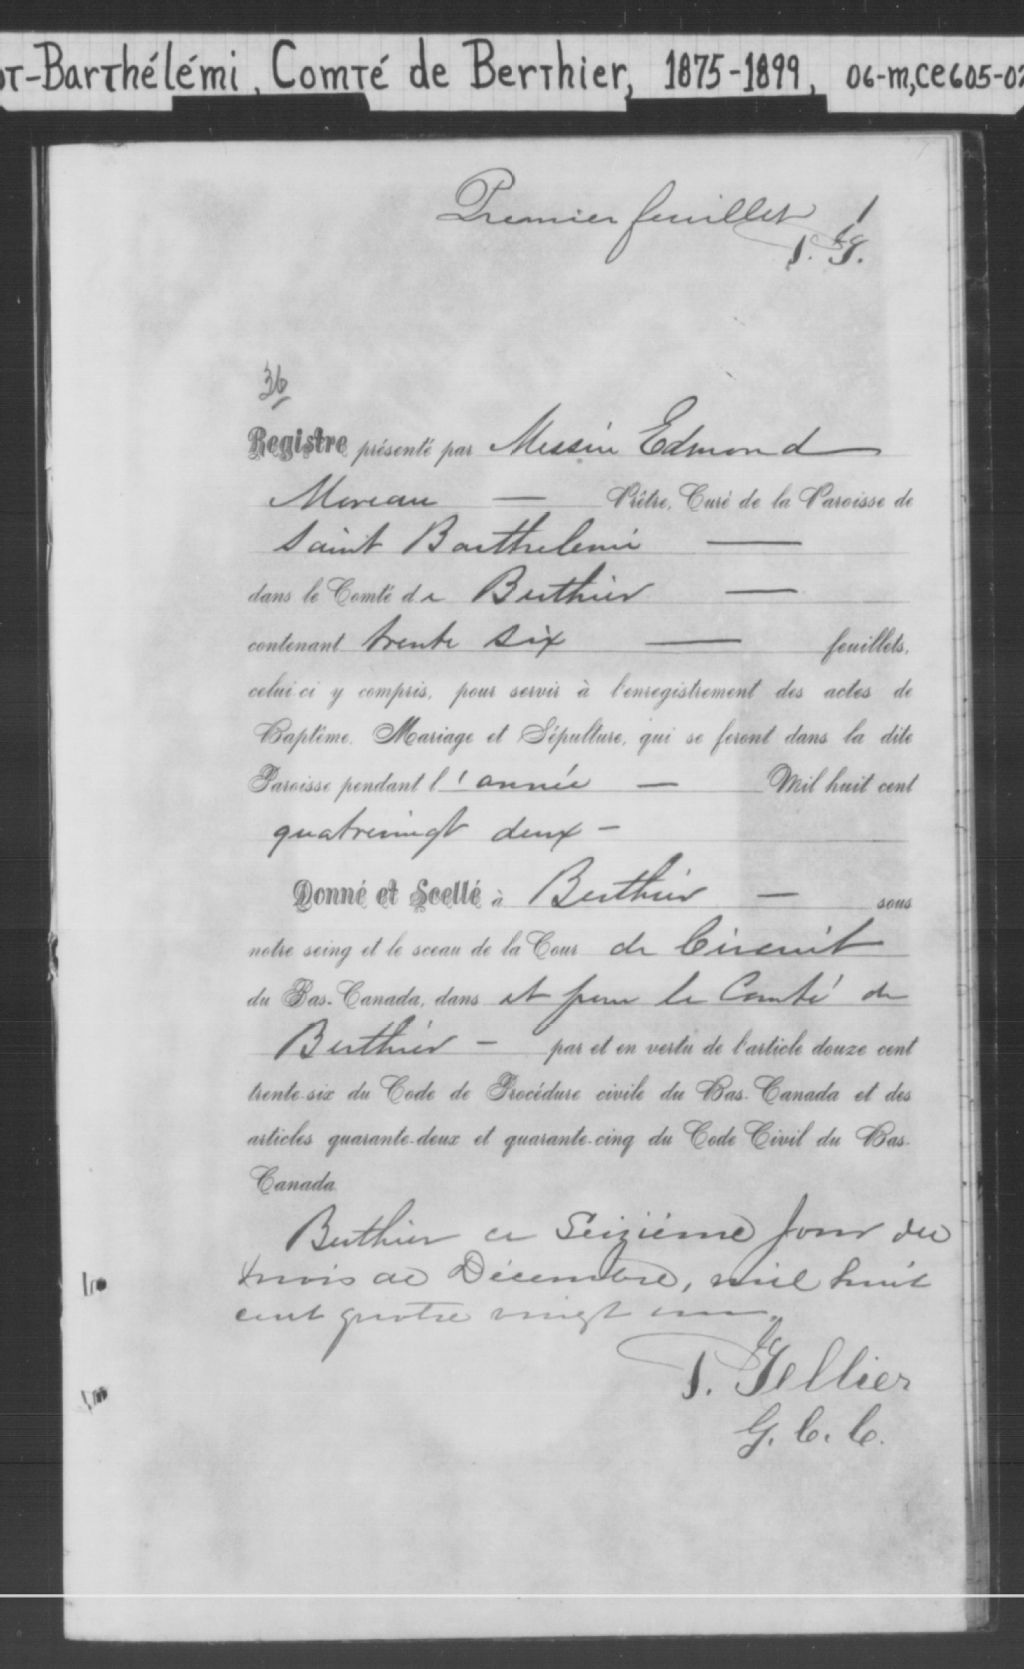 -Barthélémi, Comté de Berthier, 1875-1899, 06-m,ce605-02
Premier feuillet 1
P. T.
36
Registre présenté par Messire Edmond
Moreau — Prêtre, Curé de la Paroisse de
Saint Barthelemi —
dans le Comté de Berthier —
contenant trente six — feuillets,
celui-ci y compris, pour servir à l'enregistrement des actes de
Baptême, Mariage et Sépulture, qui se feront dans la dite
Paroisse pendant l'année — Mil huit cent
quatrevingt deux -
Donné et Scellé à Berthier — sous
notre seing et le sceau de la Cour de Circuit
du Bas-Canada, dans et pour le Comté de
Berthier - par et en vertu de l'article douze cent
trente-six du Code de Procédure civile du Bas-Canada et des
articles quarante-deux et quarante-cinq du Code Civil du Bas-
Canada
Berthier ce Seizième jour du
mois de Décembre, mil huit
cent quatre vingt un.
P. Tellier
G. C. C.